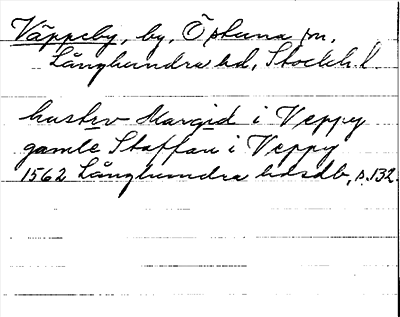 Väppeby, by, Östuna sn,
Långhundra hd, Stockh. l.
hustrv Margid i Veppy
gamle Staffan i Veppy
1562 Långhundra hdsdb, s. 132.